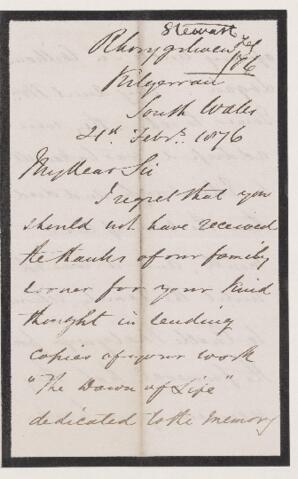 Stewart
Rhosygilwen Feb
/76
Kilgerran
South Wales
21st Feb. 1876
My Dear Sir
I regret that you
should not have received
the thanks of our family
sooner for your kind
thought in sending
copies of your work
"The Dawn of Life"
dedicated to the memory